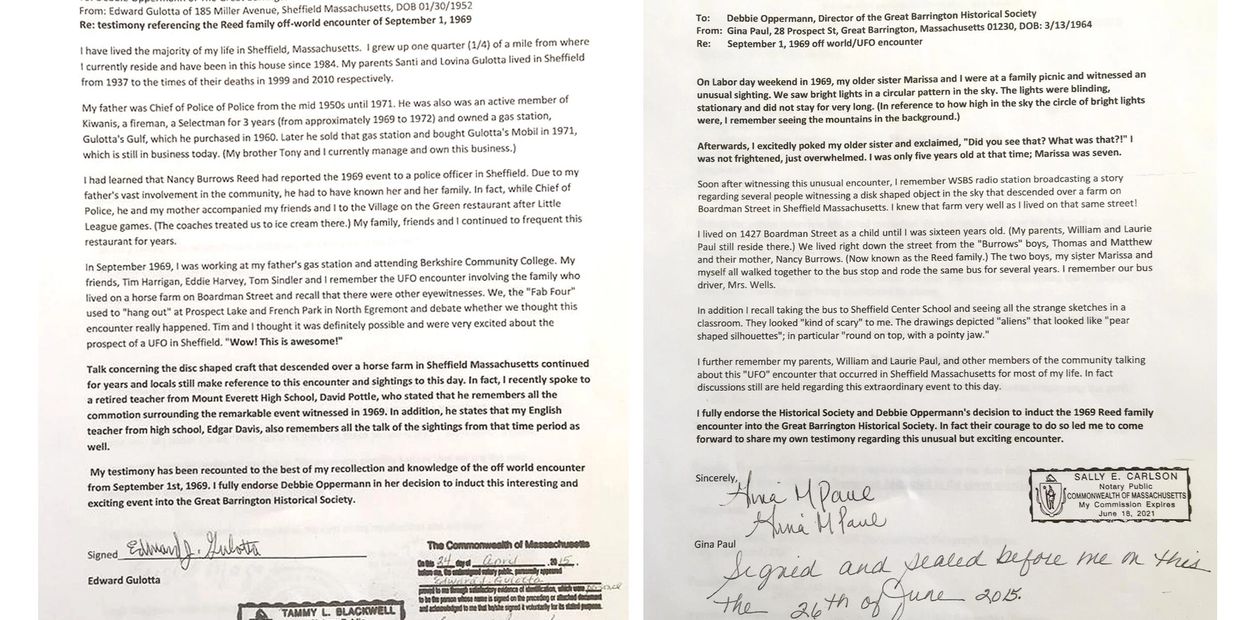 From: Edward Gulotta of 185 Miller Avenue, Sheffield Massachusetts, DOB 01/30/1952
Re: testimony referencing the Reed family off-world encounter of September 1, 1969
I have lived the majority of my life in Sheffield, Massachusetts. I grew up one quarter (1/4) of a mile from where
I currently reside and have been in this house since 1984. My parents Santi and Lovina Gulotta lived in Sheffield
from 1937 to the times of their deaths in 1999 and 2010 respectively.
My father was Chief of Police of Police from the mid 1950s until 1971. He was also was an active member of
Kiwanis, a fireman, a Selectman for 3 years (from approximately 1969 to 1972) and owned a gas station,
Gulotta's Gulf, which he purchased in 1960. Later he sold that gas station and bought Gulotta's Mobil in 1971,
which is still in business today. (My brother Tony and I currently manage and own this business.)
I had learned that Nancy Burrows Reed had reported the 1969 event to a police officer in Sheffield. Due to my
father's vast involvement in the community, he had to have known her and her family. In fact, while Chief of
Police, he and my mother accompanied my friends and I to the Village on the Green restaurant after Little
League games. (The coaches treated us to ice cream there.) My family, friends and I continued to frequent this
restaurant for years.
In September 1969, I was working at my father's gas station and attending Berkshire Community College. My
friends, Tim Harrigan, Eddie Harvey, Tom Sindler and I remember the UFO encounter involving the family who
lived on a horse farm on Boardman Street and recall that there were other eyewitnesses. We, the "Fab Four"
used to "hang out" at Prospect Lake and French Park in North Egremont and debate whether we thought this
encounter really happened. Tim and I thought it was definitely possible and were very excited about the
prospect of a UFO in Sheffield. "Wow! This is awesome!"
Talk concerning the disc shaped craft that descended over a horse farm in Sheffield Massachusetts continued
for years and locals still make reference to this encounter and sightings to this day. In fact, I recently spoke to
a retired teacher from Mount Everett High School, David Pottle, who stated that he remembers all the
commotion surrounding the remarkable event witnessed in 1969. In addition, he states that my English
teacher from high school, Edgar Davis, also remembers all the talk of the sightings from that time period as
well.
My testimony has been recounted to the best of my recollection and knowledge of the off world encounter
from September 1st, 1969. I fully endorse Debbie Oppermann in her decision to induct this interesting and
exciting event into the Great Barrington Historical Society.
Signed Edward J. Gulotta
Edward Gulotta
The Commonwealth of Massachusetts
On this 24 day of April, 2015,
before me, the undersigned notary public, personally appeared
Edward J. Gulotta
proved to me through satisfactory evidence of identification, which were
to be the person whose name is signed on the preceding or attached document
and acknowledged to me that he/she signed it voluntarily for its stated purpose.
TAMMY L. BLACKWELL
To: Debbie Oppermann, Director of the Great Barrington Historical Society
From: Gina Paul, 28 Prospect St, Great Barrington, Massachusetts 01230, DOB: 3/13/1964
Re: September 1, 1969 off world/UFO encounter
On Labor day weekend in 1969, my older sister Marissa and I were at a family picnic and witnessed an
unusual sighting. We saw bright lights in a circular pattern in the sky. The lights were blinding,
stationary and did not stay for very long. (In reference to how high in the sky the circle of bright lights
were, I remember seeing the mountains in the background.)
Afterwards, I excitedly poked my older sister and exclaimed, "Did you see that? What was that?!" I
was not frightened, just overwhelmed. I was only five years old at that time; Marissa was seven.
Soon after witnessing this unusual encounter, I remember WSBS radio station broadcasting a story
regarding several people witnessing a disk shaped object in the sky that descended over a farm on
Boardman Street in Sheffield Massachusetts. I knew that farm very well as I lived on that same street!
I lived on 1427 Boardman Street as a child until I was sixteen years old. (My parents, William and Laurie
Paul still reside there.) We lived right down the street from the "Burrows" boys, Thomas and Matthew
and their mother, Nancy Burrows. (Now known as the Reed family.) The two boys, my sister Marissa and
myself all walked together to the bus stop and rode the same bus for several years. I remember our bus
driver, Mrs. Wells.
In addition I recall taking the bus to Sheffield Center School and seeing all the strange sketches in a
classroom. They looked "kind of scary" to me. The drawings depicted "aliens" that looked like "pear
shaped silhouettes"; in particular "round on top, with a pointy jaw."
I further remember my parents, William and Laurie Paul, and other members of the community talking
about this "UFO" encounter that occurred in Sheffield Massachusetts for most of my life. In fact
discussions still are held regarding this extraordinary event to this day.
I fully endorse the Historical Society and Debbie Oppermann's decision to induct the 1969 Reed family
encounter into the Great Barrington Historical Society. In fact their courage to do so led me to come
forward to share my own testimony regarding this unusual but exciting encounter.
Sincerely,
Gina M Paul
Gina M Paul
Gina Paul
SALLY E. CARLSON
Notary Public
COMMONWEALTH OF MASSACHUSETTS
My Commission Expires
June 18, 2021
Signed and sealed before me on this
the 26th of June 2015.